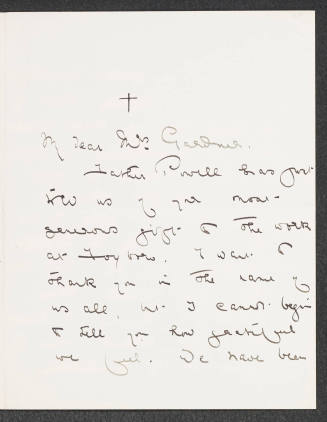 †
My dear Mrs Gardner.
Father Powell has just
told us of your most
generous gift to the work
at Foxboro. I want to
thank you in the name of
us all, but I cannot begin
to tell you how grateful
we feel. We have been